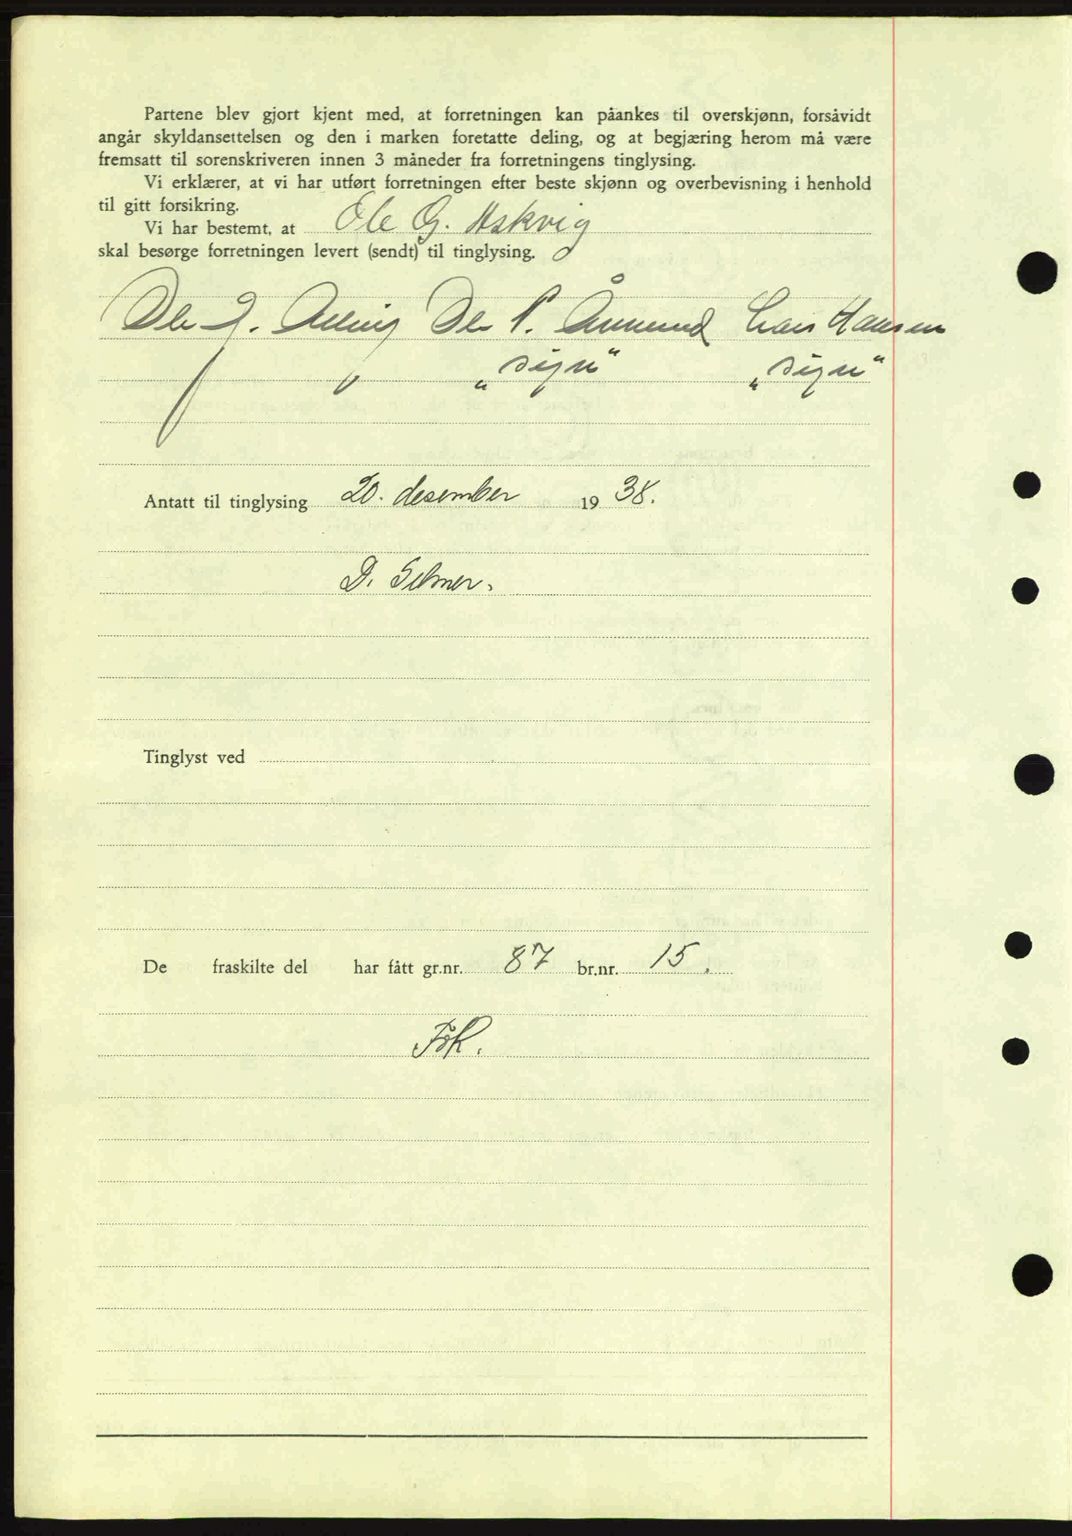 Partene blev gjort kjent med, at forretningen kan påankes til overskjønn, forsåvidt
angår skyldansettelsen og den i marken foretatte deling, og at begjæring herom må være
fremsatt til sorenskriveren innen 3 måneder fra forretningens tinglysing.
Vi erklærer, at vi har utført forretningen efter beste skjønn og overbevisning i henhold
til gitt forsikring.
Vi har bestemt, at Ole G. Askvig
skal besørge forretningen levert (sendt) til tinglysing.
Ole J. Ole P. Åmund Lars Hansen
„sign“ „sign“
Antatt til tinglysing 20. desember 1938.
D. Selmer.
Tinglyst ved
De fraskilte del har fått gr.nr. 87 br.nr. 15.